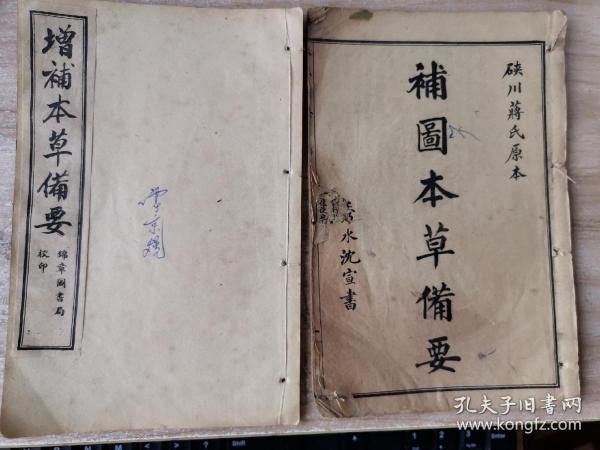 增補本草備要
錦章圖書局
校印
硤川蔣氏原本
補圖本草備要
水沈宣書
孔夫子旧书网
www.kongfz.com